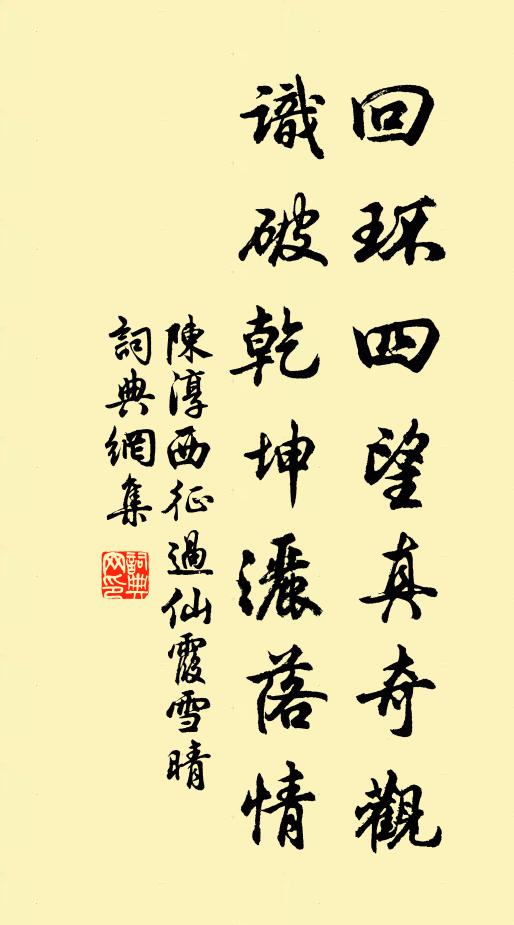 回环四望真奇觀
識破乾坤灑落情
陳淳西征過仙霞雪晴
詞典網集
詞典
网印